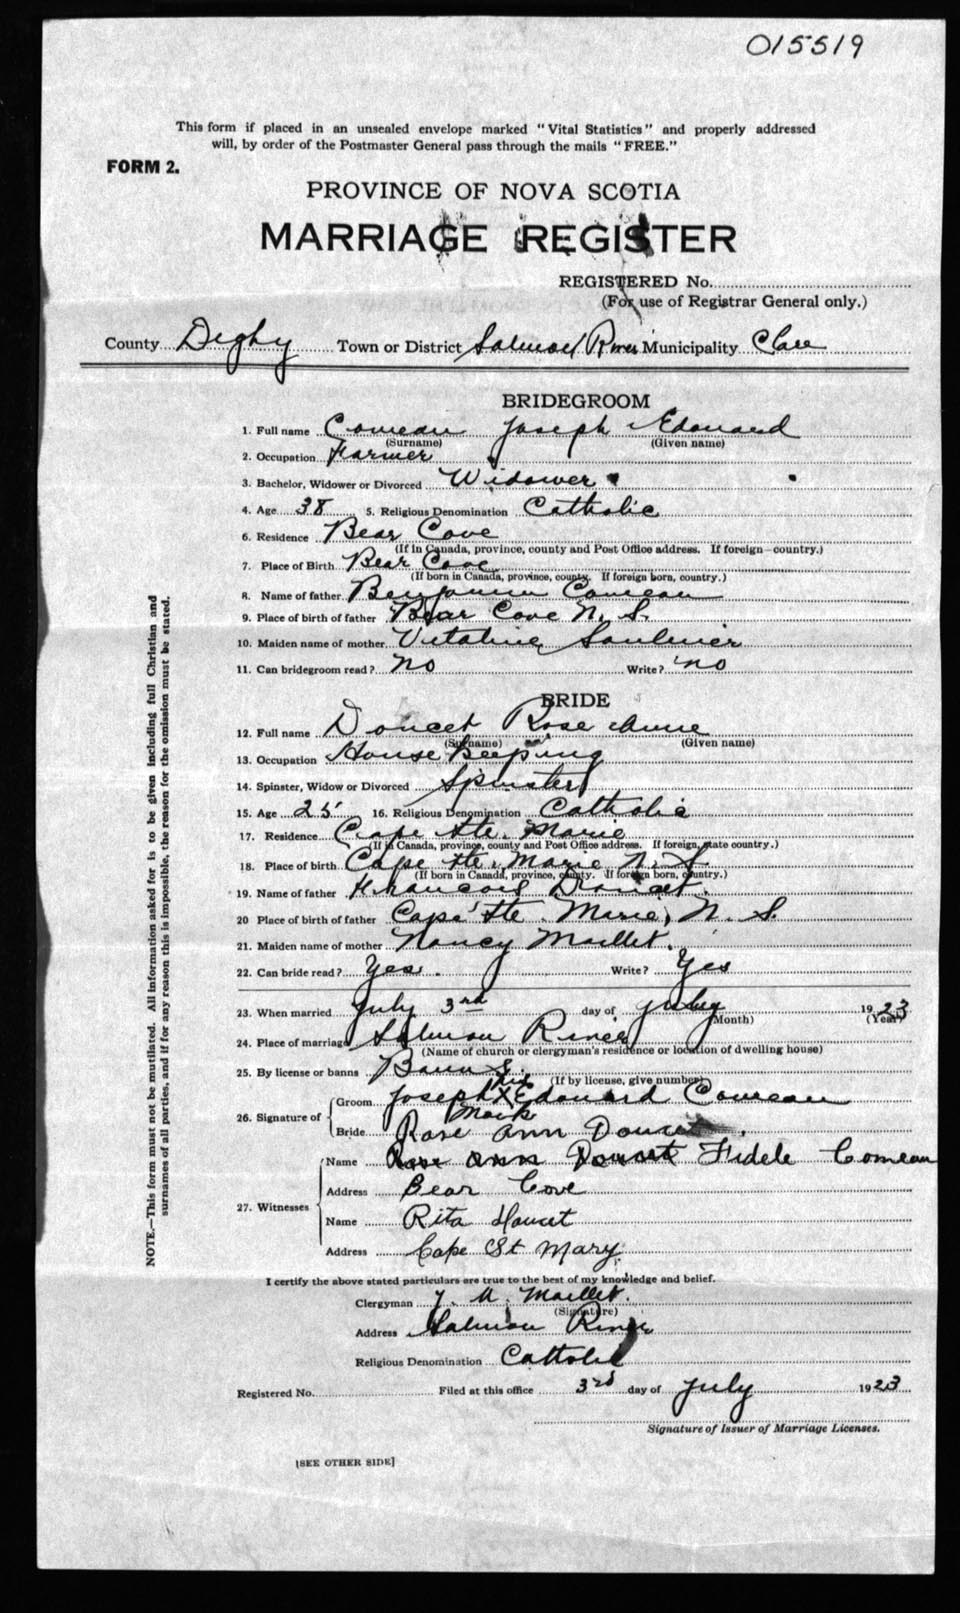 015519
This form if placed in an unsealed envelope marked "Vital Statistics" and properly addressed
will, by order of the Postmaster General pass through the mails "FREE."
FORM 2.
PROVINCE OF NOVA SCOTIA
MARRIAGE REGISTER
REGISTERED No.
(For use of Registrar General only.)
County Digby Town or District Salmon River Municipality Clare
BRIDEGROOM
1. Full name Comeau Joseph Edouard
(Surname) (Given name)
2. Occupation Farmer
3. Bachelor, Widower or Divorced Widower
4. Age 38 5. Religious Denomination Catholic
6. Residence Bear Cove
(If in Canada, province, county and Post Office address. If foreign—country.)
7. Place of Birth Bear Cove
(If born in Canada, province, county. If foreign born, country.)
8. Name of father Benjamin Comeau
9. Place of birth of father Bear Cove N. S.
10. Maiden name of mother Vitaline Saulnier
11. Can bridegroom read? no Write? no
BRIDE
12. Full name Doucet Rose Anne
(Surname) (Given name)
13. Occupation House Keeping
14. Spinster, Widow or Divorced Spinster
15. Age 25 16. Religious Denomination Catholic
17. Residence Cape Ste. Marie
(If in Canada, province, county and Post Office address. If foreign, state country.)
18. Place of birth Cape Ste. Marie N. S
(If born in Canada, province, county. If foreign born, country.)
19. Name of father Francois Doucet.
20 Place of birth of father Cape Ste. Marie, N. S.
21. Maiden name of mother Nancy Maillet.
22. Can bride read? Yes. Write? Yes
23. When married July 3rd day of July 1923
(Month) (Year)
24. Place of marriage Salmon River
(Name of church or clergyman's residence or location of dwelling house)
25. By license or banns Banns.
(If by license, give number)
his
26. Signature of Groom Joseph X Edouard Comeau
Mark
Bride Rose Ann Doucet
27. Witnesses Name Rose Ann Doucet Fidele Comeau
Address Bear Cove
Name Rita Doucet
Address Cape St Mary
I certify the above stated particulars are true to the best of my knowledge and belief.
Clergyman Maillet.
(Signature)
Address Salmon River
Religious Denomination Catholic
Registered No. Filed at this office 3rd day of July 1923
Signature of Issuer of Marriage Licenses.
[SEE OTHER SIDE]
NOTE.—This form must not be mutilated. All information asked for is to be given including full Christian and
surnames of all parties, and if for any reason this is impossible, the reason for the omission must be stated.